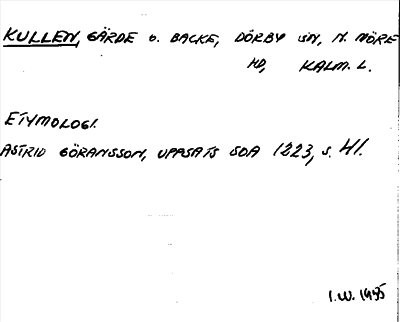 KULLEN, GÄRDE O. BACKE, DÖRBY SN, N. MÖRE
HD, KALM. L.
ETYMOLOGI.
ASTRID GÖRANSSON, UPPSATS SOA 1223, S. 41.
I.W. 1995